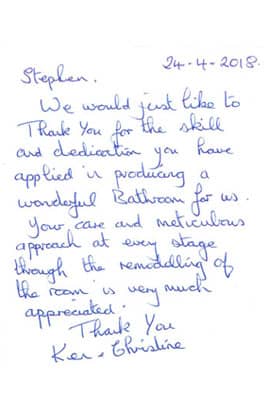 24-4-2018.
Stephen.
We would just like to
Thank You for the skill
and dedication you have
applied in producing a
wonderful Bathroom for us.
Your care and meticulous
approach at every stage
through the remoddling of
the room is very much
appreciated.
Thank You
Ken & Christine